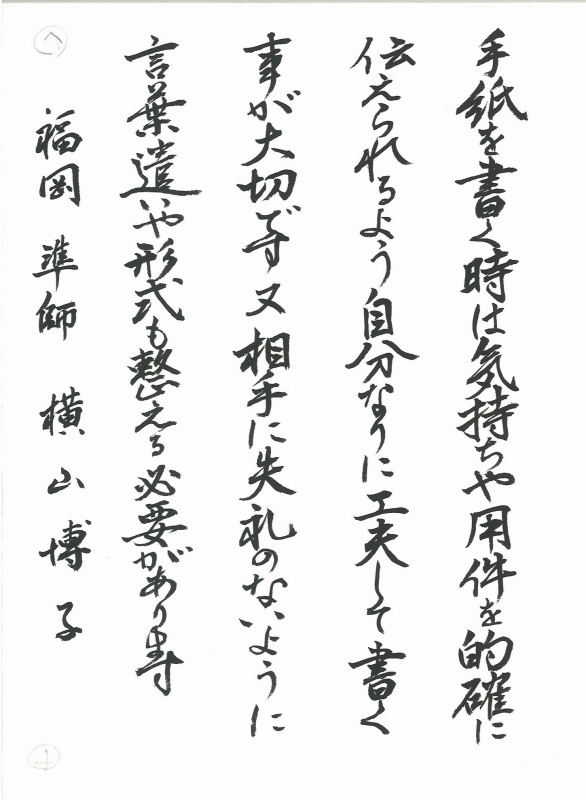 手紙を書く時は気持ちや用件を的確に
伝えられるよう自分なりに工夫して書く
事が大切です又相手に失礼のないように
言葉遣いや形式も整える必要があります
福岡 準師 横山博子